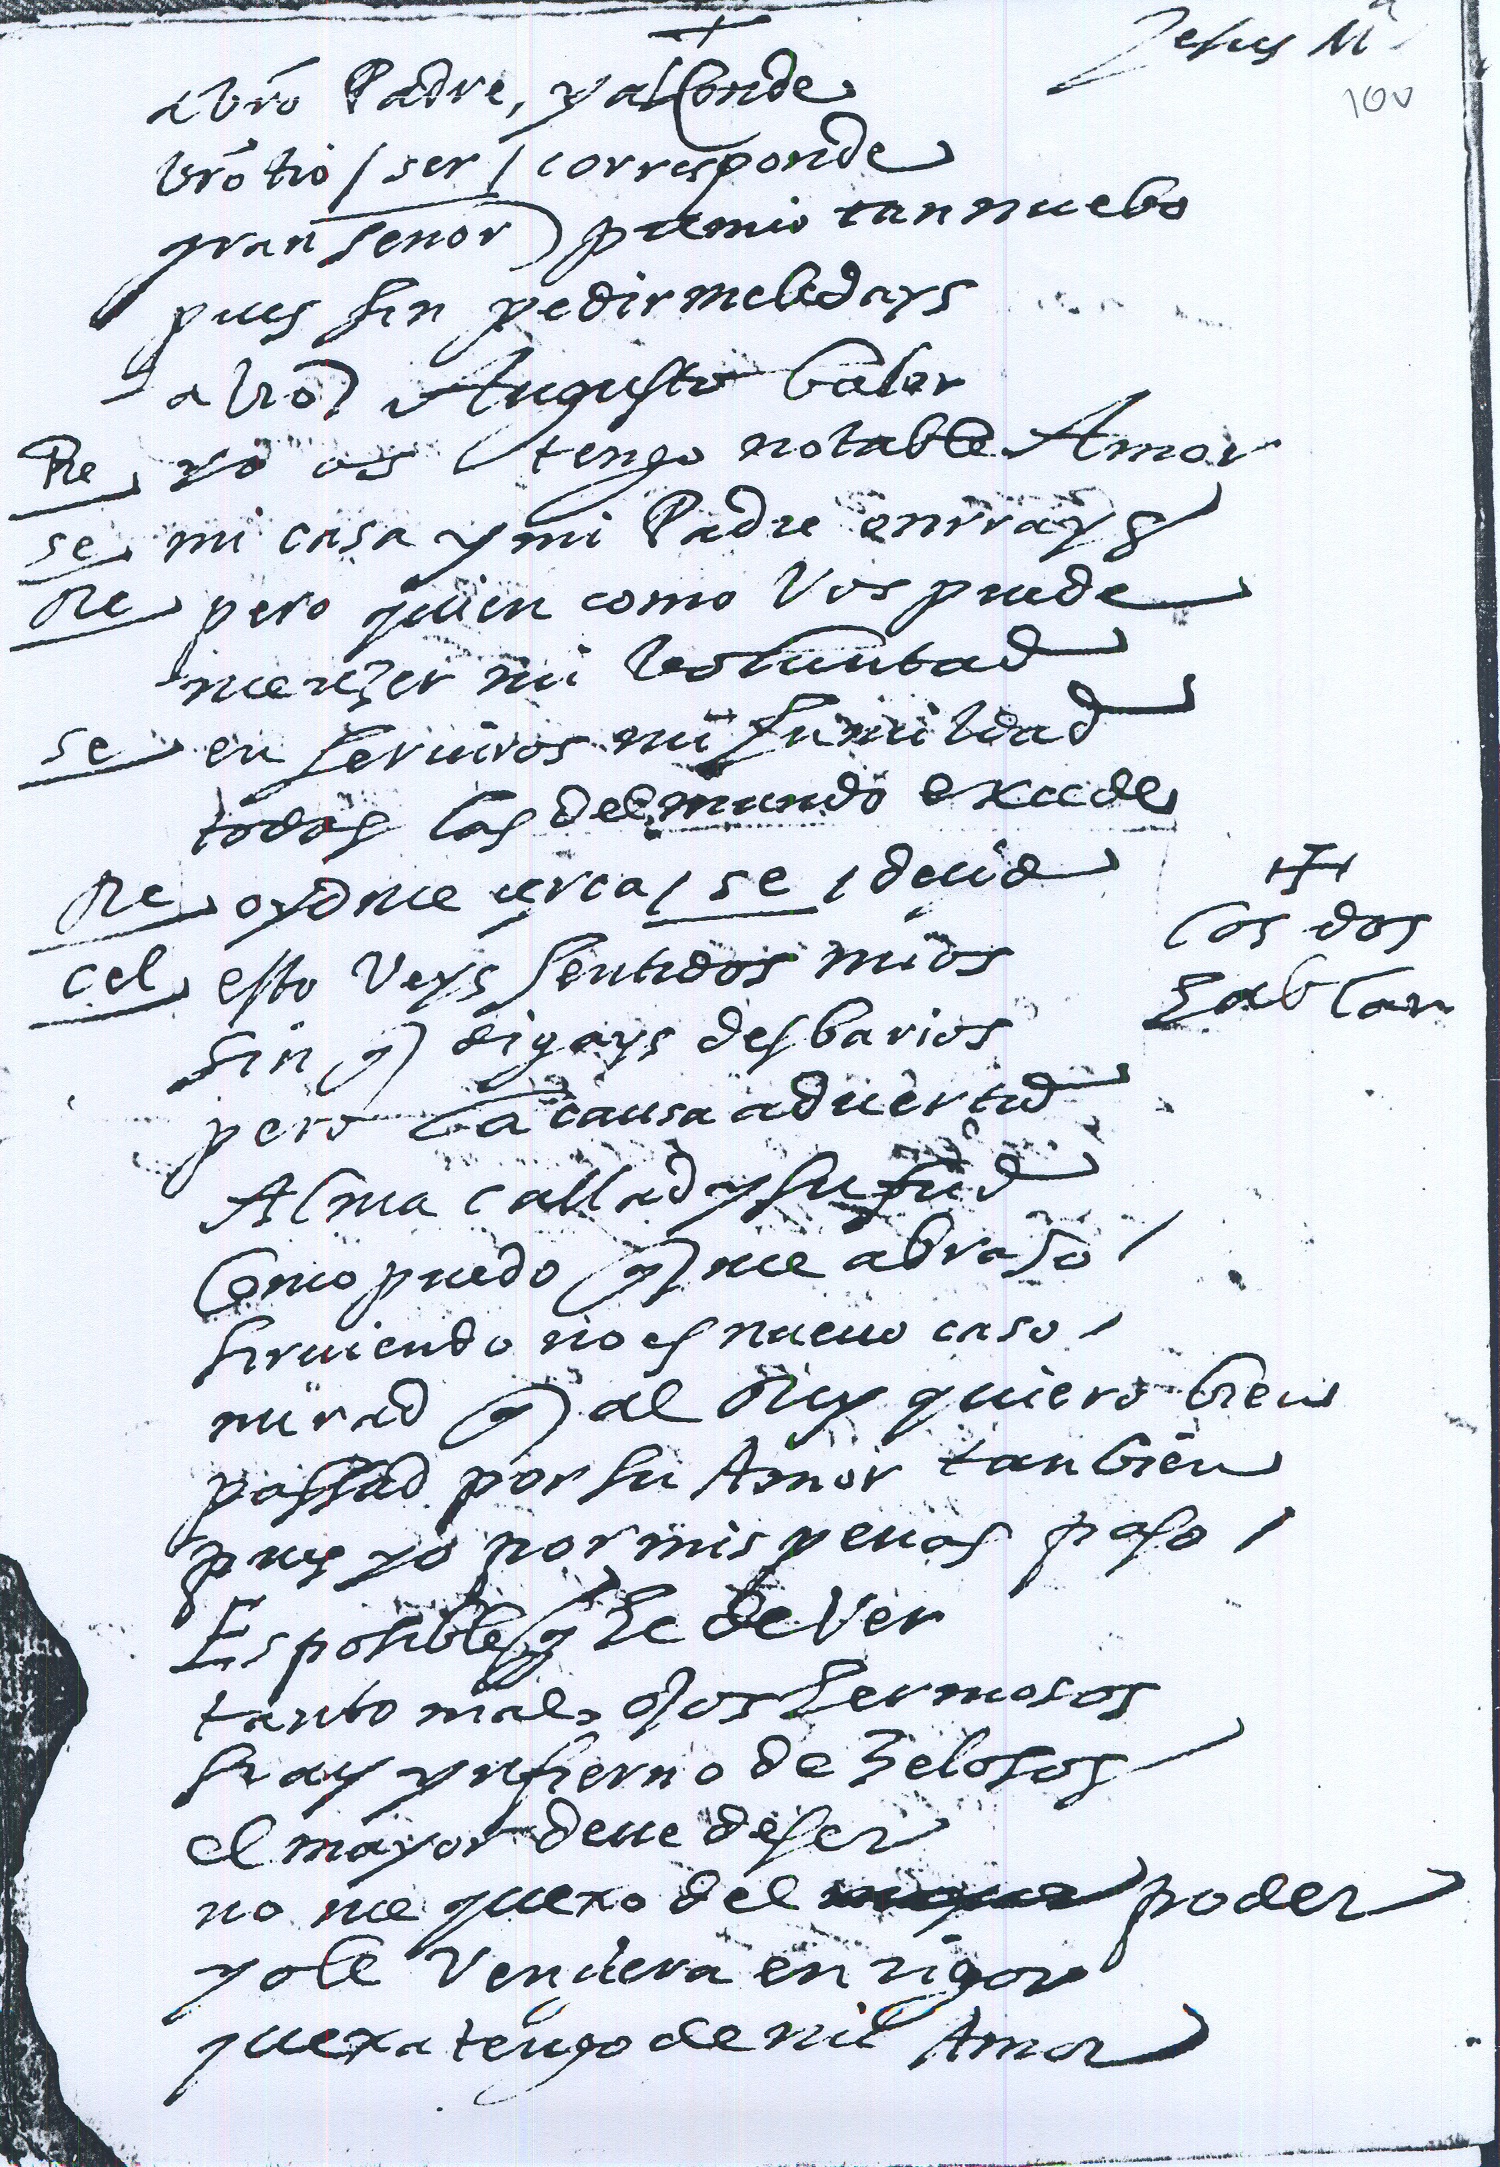 Jesus Ma
10v
a vro Padre, y al Conde
vro tio / ser / corresponde
gran señor) premio tan nuebo
pues sin pedirmele days
a vro Augusto balor
Re yo os tengo notable Amor
se mi casa y mi Padre onrrays
Re pero quien como Vos puede
merezer mi voluntad
se en seruiros mi humildad
todas las del mundo excede
Re oydme cerca / se / decid
los dos
hablan
cel esto veys sentidos mios
sin q digays desbarios
pero la causa aduertid
Alma callad y sufrid
Como puedo q me abraso /
siruiendo no es nueuo caso /
mirad q al Rey quiero bien
passad por su Amor tanbien
pues yo por mis penas paso /
Es posible q he de ver
tanto mal, ojos hermosos
si ay ynfierno de zelosos
el mayor deue de ser
no me quexo del poder
yo le venciera en rigor
quexa tengo de mi Amor